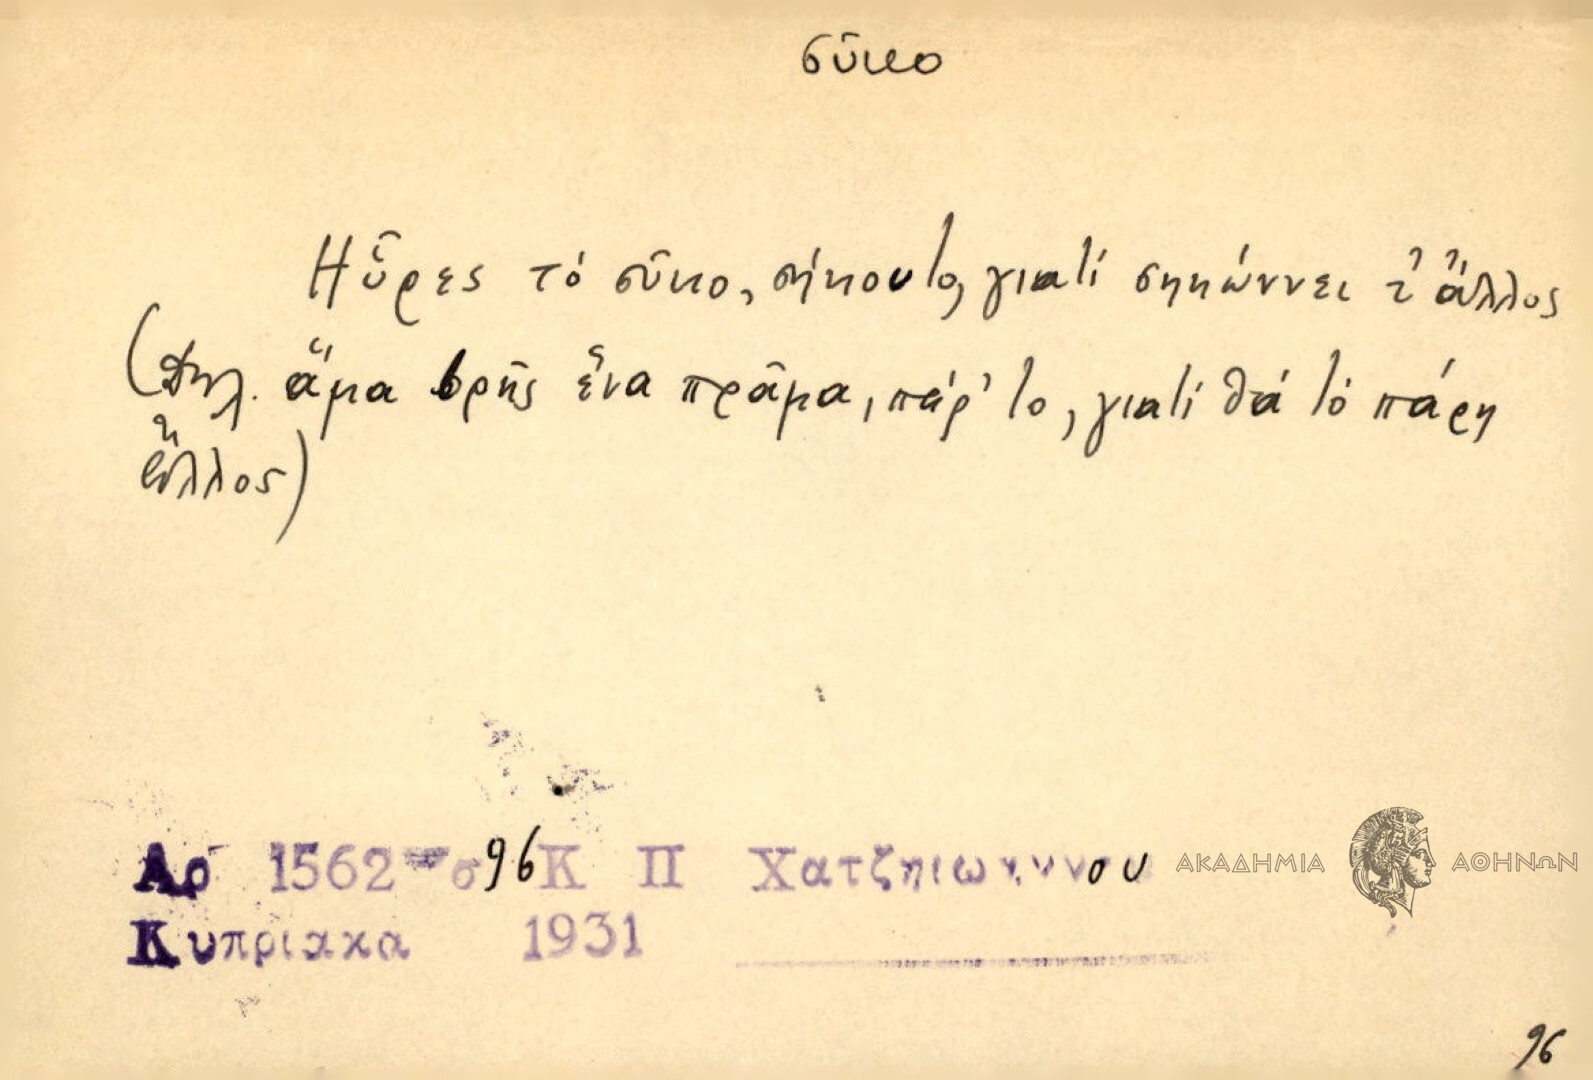 σῦκο
Ηὗρες τό σῦκο, σήκου το, γιατί σηκώννει τ' ἄλλος
(Δηλ. ἅμα βρῇς ἕνα πρᾶμα, πάρ' το, γιατί θά τό πάρη
ἄλλος)
Αρ 1562 σ 96 Κ Π Χατζηιωαννου
Κυπριακα 1931
ΑΚΑΔΗΜΙΑ ΑΘΗΝΩΝ
96